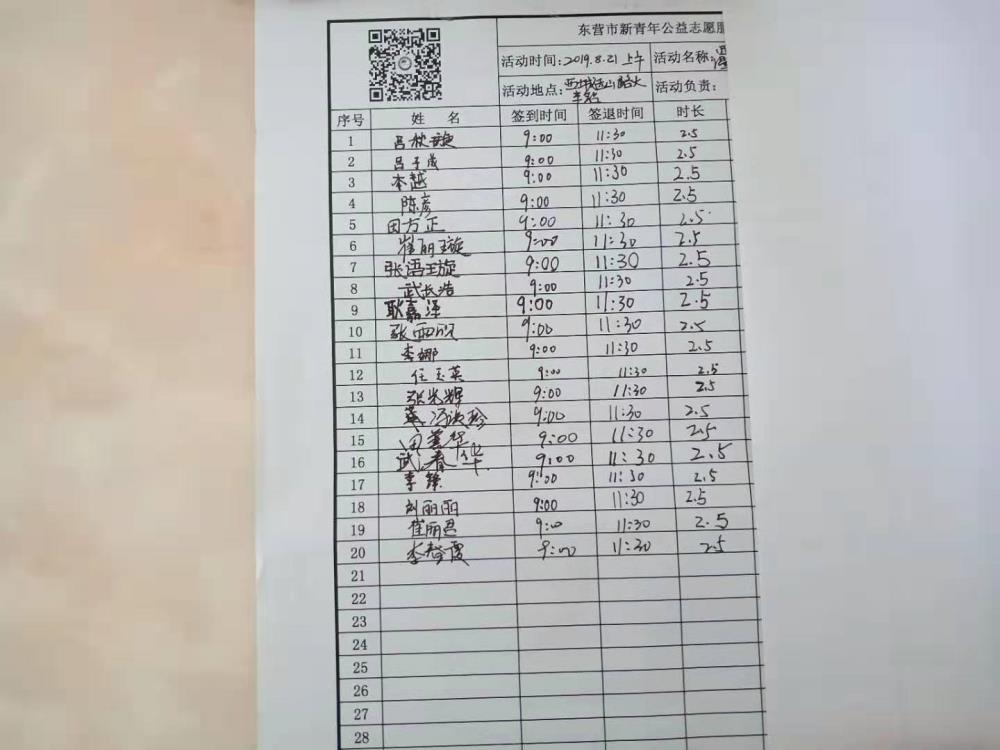 东营市新青年公益志愿服
活动时间:2019.8.21 上午 活动名称:
活动地点: 活动负责:
序号 姓 名 签到时间 签退时间 时长
1 吕秋璇 9:00 11:30 2.5
2 吕子成 9:00 11:30 2.5
3 本越 9:00 11:30 2.5
4 陈彦 9:00 11:30 2.5
5 田方正 9:00 11:30 2.5
6 崔丽璇 9:00 11:30 2.5
7 张语璇 9:00 11:30 2.5
8 武长浩 9:00 11:30 2.5
9 耿嘉泽 9:00 11:30 2.5
10 张雨 9:00 11:30 2.5
11 李娜 9:00 11:30 2.5
12 任玉英 9:00 11:30 2.5
13 张光辉 9:00 11:30 2.5
14 9:00 11:30 2.5
15 田 9:00 11:30 2.5
16 武春华 9:00 11:30 2.5
17 李 9:00 11:30 2.5
18 刘丽丽 9:00 11:30 2.5
19 崔丽君 9:00 11:30 2.5
20 李 霞 9:00 11:30 2.5
21
22
23
24
25
26
27
28